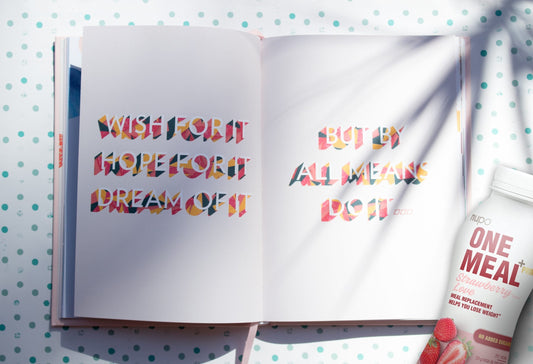 WISH FOR IT
HOPE FOR IT
DREAM OF IT
BUT BY
ALL MEANS
DO IT
nupo
ONE
MEAL+
Strawberry
Love
MEAL REPLACEMENT
HELPS YOU LOSE WEIGHT*
NO ADDED SUGAR